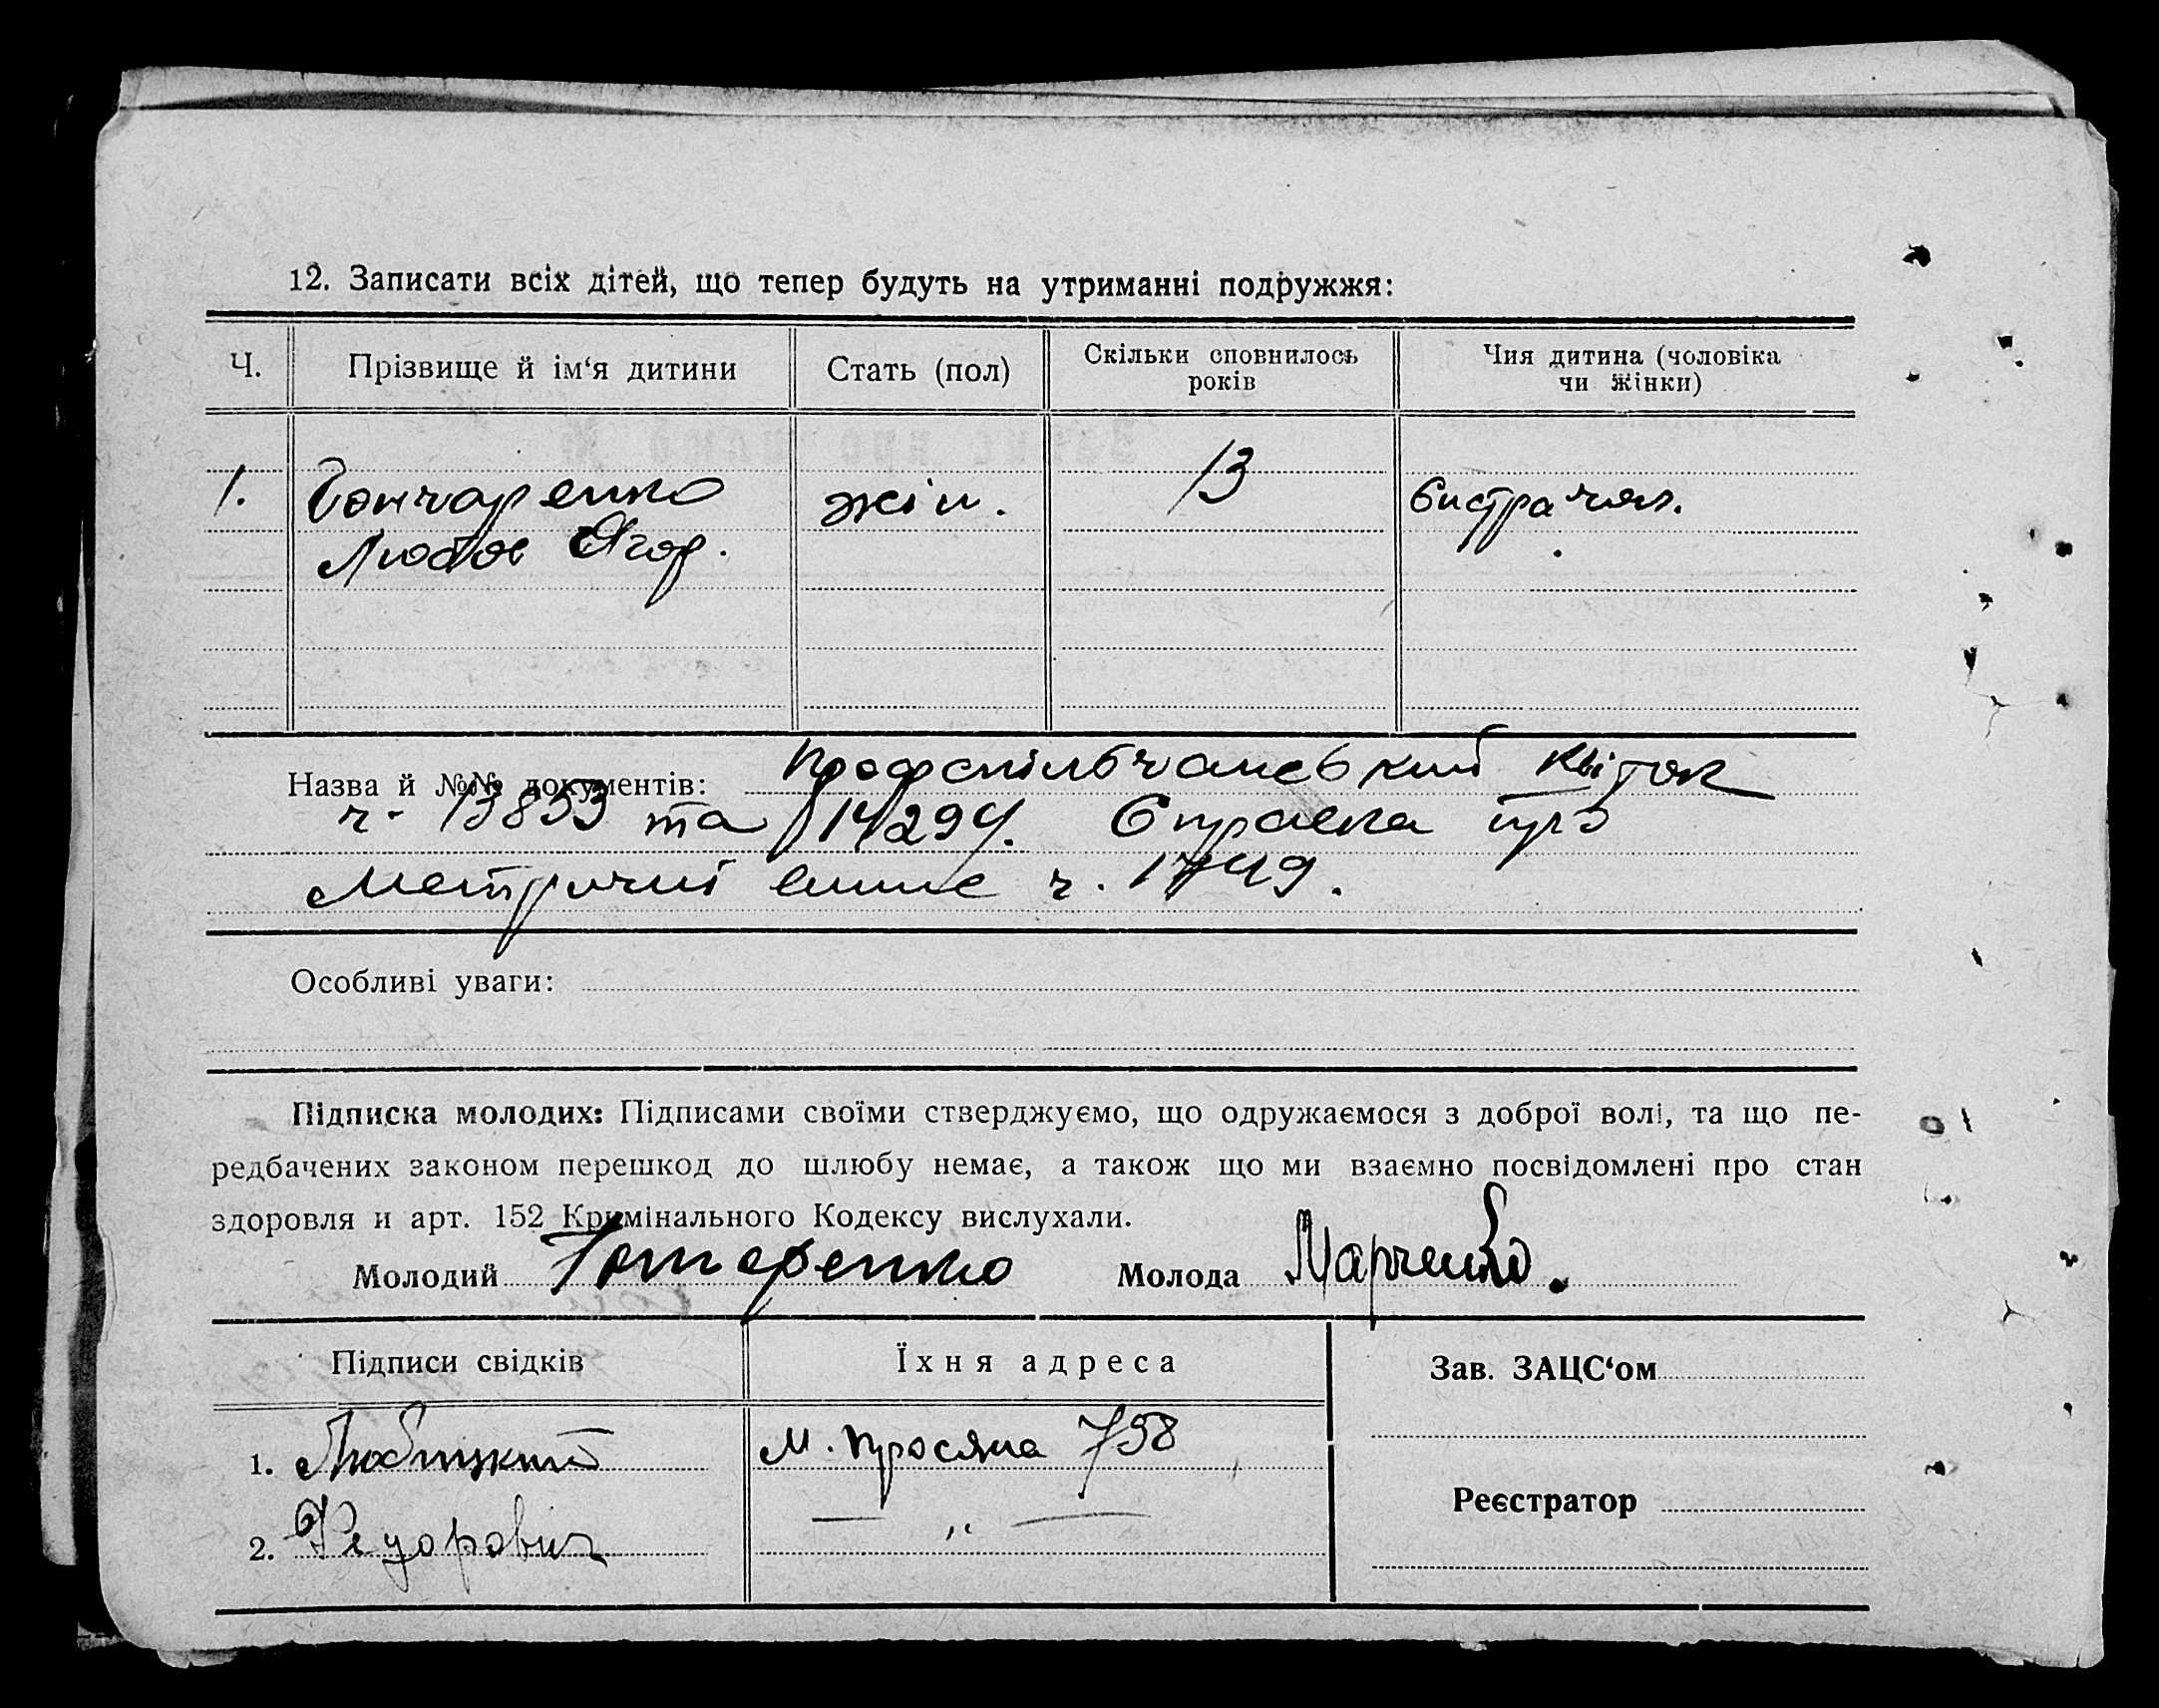 12. Записати всіх дітей, що тепер будуть на утриманні подружжя:
Ч. Прізвище й ім‘я дитини Стать (пол) Скільки сповнилось років Чия дитина (чоловіка чи жінки)
1. Гончаренко жін. 13
Любов
Назва й №№ документів: Профспільчанський квіток
ч. 13853 та 14294. Справка про
Метричні випис ч. 1749.
Особливі уваги:
Підписка молодих: Підписами своїми стверджуємо, що одружаємося з доброї волі, та що пе-
редбачених законом перешкод до шлюбу немає, а також що ми взаємно посвідомлені про стан
здоровля и арт. 152 Кримінального Кодексу вислухали.
Молодий Молода Марченко.
Підписи свідків Їхня адреса Зав. ЗАЦС‘ом
1. Любицкий М. Просяна 758
Реєстратор
2. Федорович — „ —